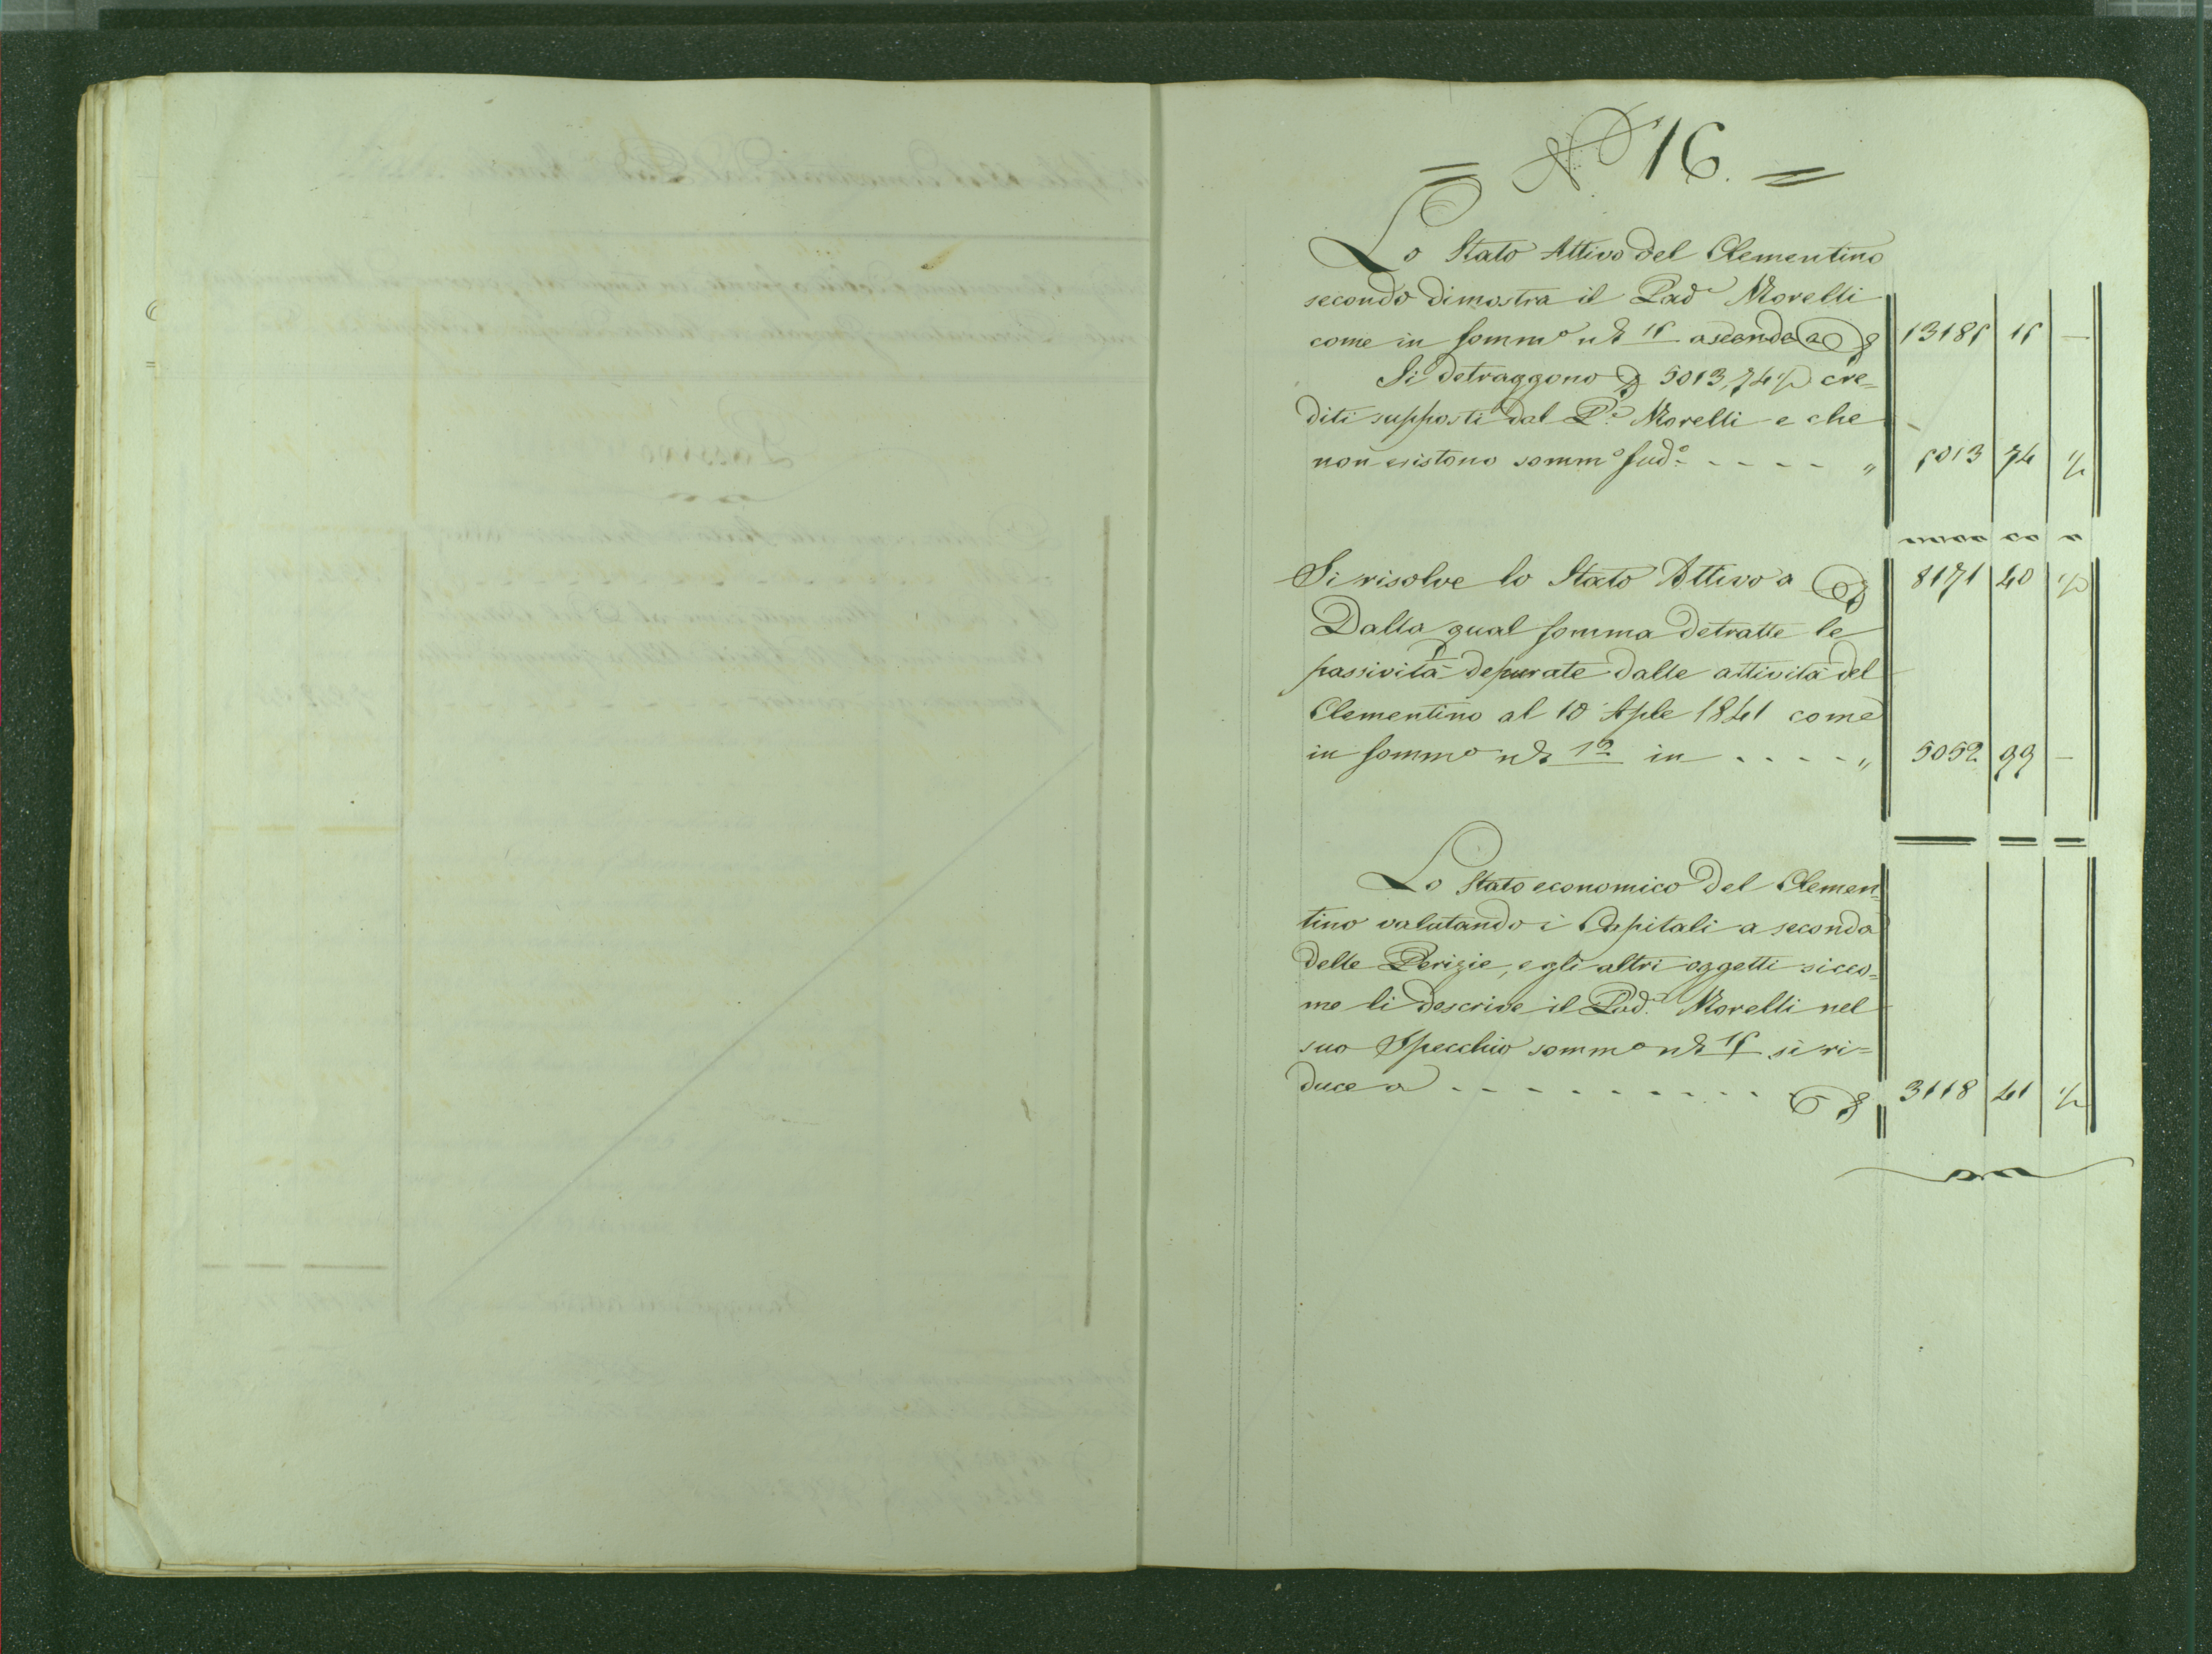 = N.º 16. =
Lo Stato Attivo del Clementino
secondo dimostra il Pad.e Morelli
come in sommº nº 15 ascende a 13185 15 —
Si detraggono 5013,74½ cre=
diti supposti dal P.e Morelli e che
non esistono sommº sudº - - - - " 5013 74 ½
Si risolve lo Stato Attivo a 8171 40 ½
Dalla qual somma detratte le
passività depurate dalle attività del
Clementino al 10 Aple 1841 come
in sommº nº 12 in - - - - " 5052 99 —
Lo Stato economico del Clemen=
tino valutando i Capitali a seconda
delle Perizie, e gli altri oggetti sicco=
me li descrive il Pad.e Morelli nel
suo Specchio sommº nº 15 si ri=
duce a - - - - - - - - - - 3118 41 ½